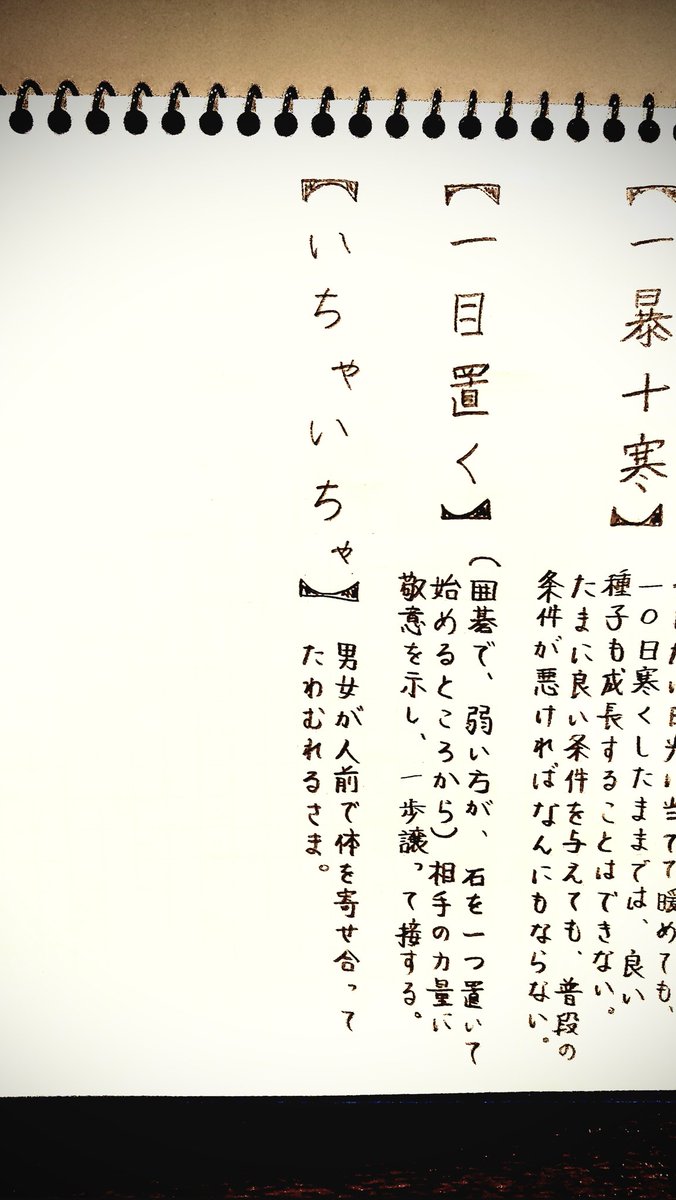 【一暴十寒】
日光に当てて暖めても、
一〇日寒くしたままでは、良い
種子も成長することはできない。
たまに良い条件を与えても、普段の
条件が悪ければなんにもならない。
【一目置く】
(囲碁で、弱い方が、石を一つ置いて
始めるところから)相手の力量に
敬意を示し、一歩譲って接する。
【いちゃいちゃ】
男女が人前で体を寄せ合って
たわむれるさま。